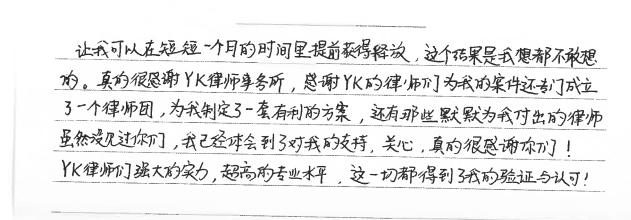 让我可以在短短一个月的时间里提前获得释放，这个结果是我想都不敢想
的。真的很感谢YK律师事务所，感谢YK的律师们为我的案件还专门成立
了一个律师团，为我制定了一套有利的方案，还有那些默默为我付出的律师
虽然没见过你们，我已经体会到了对我的支持，关心，真的很感谢你们！
YK律师们强大的实力，超高的专业水平，这一切都得到了我的验证与认可！